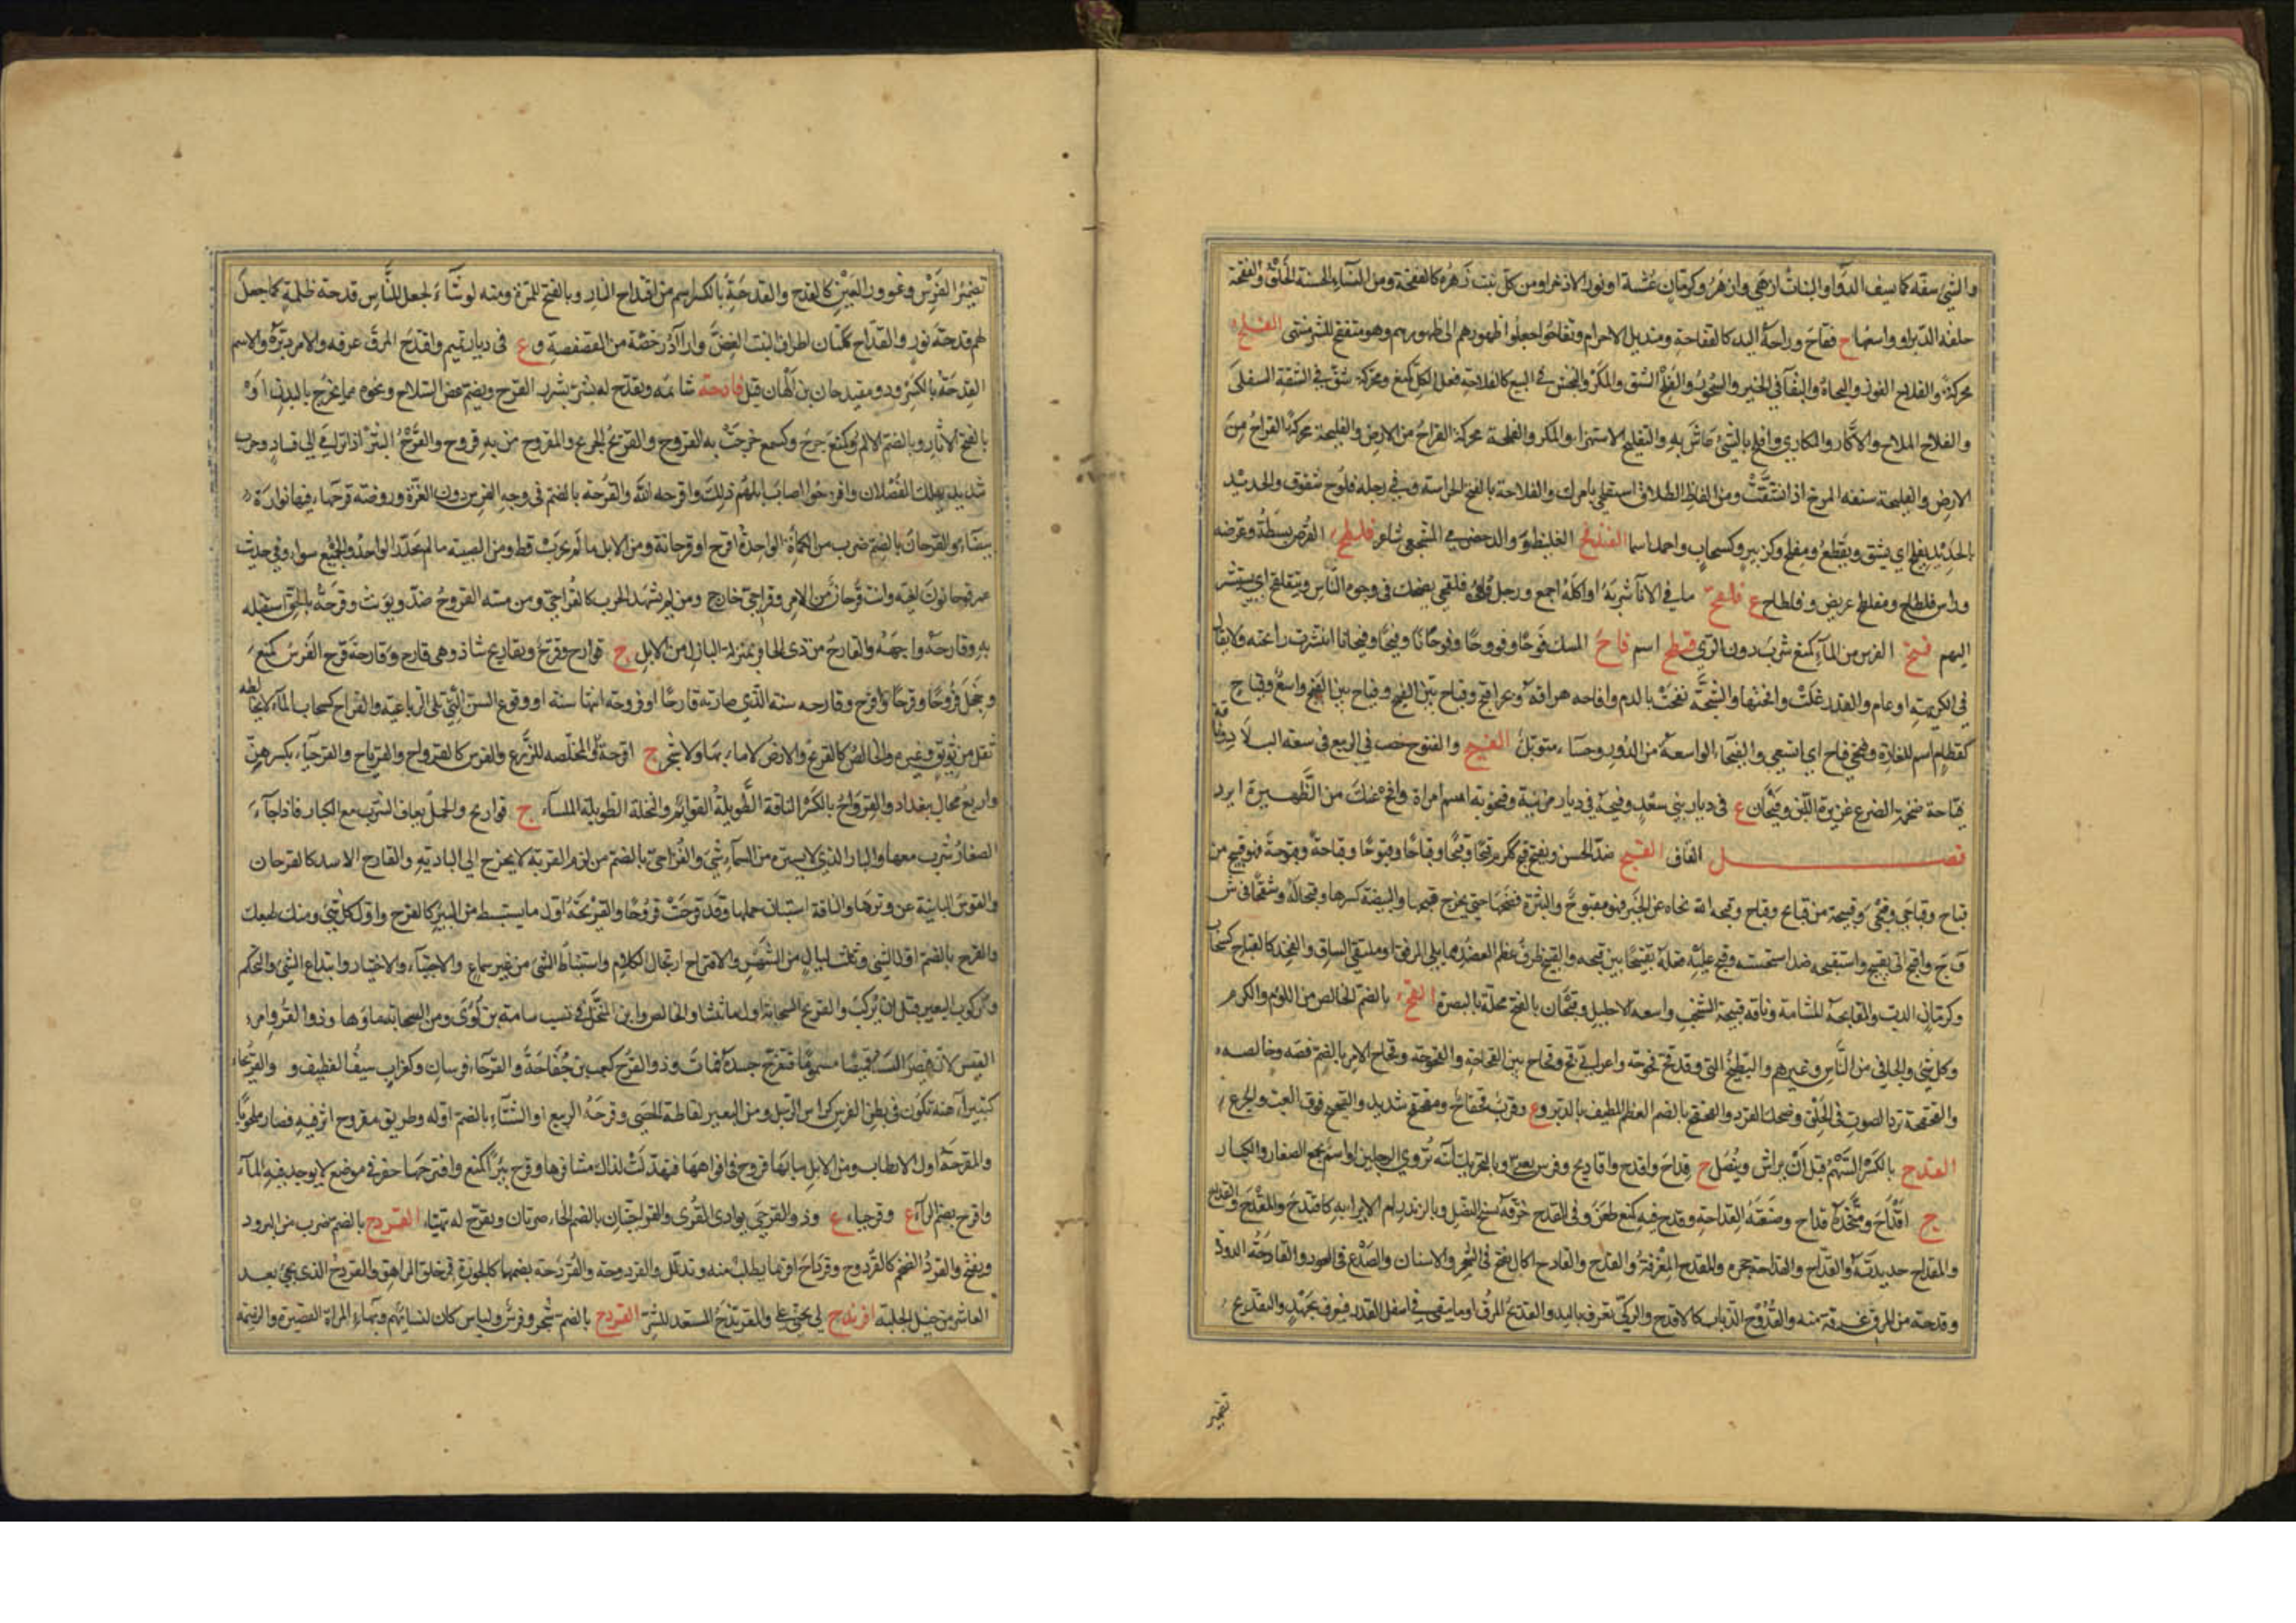 والشئ سفه كاسيف الدواو النبات ازهى وازهر وكرمان عشبة او نور الاذخر او من كل نبت زهره كالفقحة ومن النساء الحسنة الخلق والفقحة
حلقة الدبر او واسعها ج فقاح وراحة اليد كالفقاحة ومنديل الاحرام وتفاقحوا جعلوا ظهورهم الى ظهورهم وهو متفقح للشر متهئ الفلح
محركة والفلاح الفوز والنجاة والبقآ في الخير والسحور والفلح الشق والمكر والنجش في البيع كالفلاحة فعل الكل كمنع ومحركة شق في الشفة السفلى
والفلاح الملاح والاكار والمكاري وافلح بالشئ عاش به والتفليح الاستهزاء والمكر والفلحة محركة القراح من الارض والفليحة محركة القراح من
الارض والفليحة سنفة المرخ اذا انشقت ومن الفاظ الطلاق استفلحي بامرك والفلاحة بالفتح الحراسة وفي رجله فلوح شقوق والحديد
بالحديد يفلح اي يشق ويقطع ومفلح وكزبير وكسحاب واحمد اسما الفلطح فلطح القرص بسطه وعرضه
وراس فلطاح ومفلطح عريض وفلطاح ع فلقح ما في الانآ شربه او اكله اجمع ورجل فلقحي يضحك في وجوه الناس ويتفلقح اي يستبشر
اليهم فنح الفرس من المآ كمنع شرب دون الري فنطح اسم فاح المسك فوحا وفووحا وفوحانا وفيحا وفيحانا انتشرت رائحته ولا يقال
في الكريهة او عام والقدر غلت وافحتها والشجة نفحت بالدم وافاحه هراقه وبحر افيح وفياح بين الفيح وفياح بين الفيح واسع وفياح
كقطام اسم للغارة وفيحي فياح اي اتسعي والفيحاء الواسعة من الدور وحساء متوبل الفيح والفيوح خصب الربيع في سعة البلاد
فياحة ضخمة الضرع غزيرة اللبن وفيحان ع في ديار بني سعد وفيحة في ديار مزينة وفيحونة اسم امراة وافح عنك من الظهيرة ابرد
فصل القاف القبح ضد الحسن ويفتح قبح ككرم قبحا وقبحا وقباحا وقبوحا وقباحة وقبوحة فهو قبيح من
قباح وقباحى وقبحى وقبيحة من قبائح وقباح وقبحه الله نحاه عن الخير فهو مقبوح والبثرة فضخها حتى يخرج قيحها والبيضة كسرها وقبحا له وشقحا في ش
ق ح واقبح اتى بقبيح واستقبحه ضد استحسنه وقبح عليه فعله تقبيحا بين قبحه والقبيح طرف عظم العضد مما يلي المرفق او ملتقى الساق والفخذ كالقباح كسحاب
وكرمان الدب والمقابحة المشاتمة وناقة قبيحة الشخب واسعة الاحليل وقبحان بالفتح محلة بالبصرة القح بالضم الخالص من اللؤم والكرم
وكل شئ والجافي من الناس وغيرهم والبطيخ الني وقد قح قحوحة واعرابي قح وقحاح بين القحاحة والقحوحة وقحاح الامر بالضم فصه وخالصه
والقحقحة تردد الصوت في الحلق وضحك القرد والقحقح بالضم العظم المطيف بالدبر وع وقرب قحقاح ومقحقح شديد والقحيح فوق العب والجرع
القدح بالكسر السهم قبل ان يراش وينصل ج قداح واقدح واقاديح وفرس لغني وبالتحريك آنية تروي الرجلين او اسم يجمع الصغار والكبار
ج اقداح ومتخذه قداح وصنعته القداحة وقدح فيه كمنع طعن وفي القدح خرقه بسنخ النصل وبالزند رام الايراء به كاقتدح والمقدح والقداح
والمقداح حديدته والقداح والقداحة حجره والمقدح المغرفة والقدح والقادح اكال يقع في الشجر والاسنان والصدع في العود والقادحة الدودة
وقدحة من المرق غرفة منه والقدوح الذباب كالاقدح والركي تغرف باليد والقديح المرق او ما يبقى في اسفل القدر فيغرف بجهد والتقديح
تضمير
تضمير الفرس وغوور العين كالقدح والقدحة بالكسر اسم من اقتداح النار وبالفتح للمرة ومنه لو شآء الله لجعل للناس قدحة ظلمة كما جعل
لهم قدحة نور والقداح ككتان اطراف النبت الغض وارآد رخصة من الفصفصة وع في ديار تميم واقتدح المرق غرفه والامر دبره والاسم
القدحة بالكسر وذو مقيدحان بن الهان قيل قادحه شاتمه وتقدح له بشر بشره القرح ويضم عض السلاح ونحوه مما يخرج بالبدن او
بالفتح الاثار وبالضم الالم وكمنع جرح وكسمع خرجت به القروح والقريح الجريح والمقروح من به قروح والقرح البثر اذا ترامى الى فساد وجرب
شديد يهلك الفصلان واقرحوا اصاب ابلهم ذلك واقرحه الله والقرحة بالضم في وجه الفرس دون الغرة وروضة قرحاء فيها نوارة
بيضاء والقرحان بالضم ضرب من الكمأة الواحدة اقرح او قرحانة ومن الابل ما لم يجرب قط ومن الصبية ما لم يجدر الواحد والجميع سواء وفي حديث
عمر قرحانون لغية وانت قرحان من الامر وقراحي خارج ومن لم يشهد الحرب كالقراحي ومن مسه القروح ضد ويؤنث وقرحه بالحق استقبله
به وقارحه واجهه والقارح من ذى الحافر بمنزلة البازل من الابل ج قوارح وقرح ومقاريح شاذ وهي قارح وقارحة قرح الفرس كمنع
وخجل قروحا وقرحا واقرح وقارحه سنه الذي صار به قارحا او قروحه انتهاء سنه او وقوع السن التي تلى الرباعية والقراح كسحاب المآء لا يخالطه
ثفل من سويق وغيره والخالص كالقريح والارض لا ماء بها ولا شجر ج اقرحة او المخلصة للزرع والغرس كالقرواح والقرياح والقرحيآء بكسرهن
واربع محال ببغداد والقرواح بالكسر الناقة الطويلة القوائم والنخلة الطويلة الملساء ج قراويح والجمل يعاف الشرب مع الكبار فاذا جآء
الصغار شرب معها والبارز الذي لا يستره من السمآء شئ والقراحي بالضم من لزم القرية لا يخرج الى البادية والقارح الاسد كالقرحان
والقوس البائنة عن وترها والناقة استبان حملها وقد قرحت قروحا والقريحة اول ما يستنبط من البئر كالقرح واول كل شئ ومنك طبعك
والقرح بالضم اول الشئ وثلث ليال من الشهر والاقتراح ارتجال الكلام واستنباط الشئ من غير سماع والاجتباء والاختيار وابتداع الشئ والتحكم
وركوب البعير قبل ان يركب والقريح السحابة اول ما تنشأ والخالص وابن المنخل في نسب سامة بن لؤى ومن السحابة ماؤها وذو القروح امرء
القيس لان قيصر البسه قميصا مسموما فتقرح جسده فمات وذو القرح كعب بن خفاجة والقرحاء فرسان وكغراب سيف القطيف و والقريحاء
كبتيراء هنة تكون في بطن الفرس كراس الرجل ومن البعير لقاطة الحصى وقرحة الربيع او الشتاء بالضم اوله وطريق مقروح اثر فيه فصار ملحوبا
والمقرحة اول الارطاب ومن الابل ما بها قروح في افواهها فتهدلت لذلك مشافرها وقرح بئرا كمنع واقترحها حفر في موضع لا يوجد فيه المآء
واقرح بضم الرآء ع وقرحاء ع وذو القرحى بوادى القرى والقراحتان بالضم الخاصرتان وتقرح له تهيأ القردح بالضم ضرب من البرود
ويفتح والقرد الضخم كالقردوح وقردح اقر بما يطلب منه وتذلل والقردوحة والقردحة بضمهما كالجوزة في حلق المراهق والقردح الذى يجئ بعد
العاشر من خيل الحلبة اقرندح لي تجنى علي والمقرندح المستعد للشر القرزح بالضم شجر وفرس ولباس كان لنسائهم وبهاء المراة القصيرة والدميمة